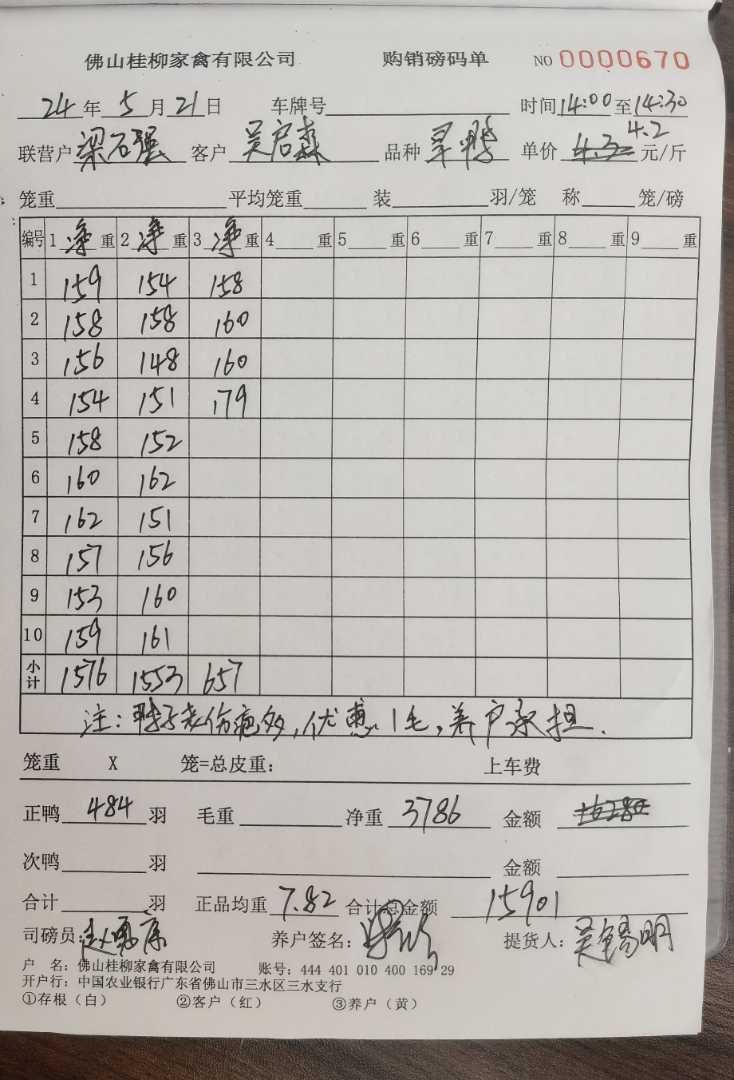 佛山桂柳家禽有限公司 购销磅码单 NO 0000670
24年5月21日 车牌号 时间14:00至14:30
联营户梁石强 客户 吴启森 品种 旱鸭 单价 4.3 4.2 元/斤
笼重 平均笼重 装 羽/笼 称 笼/磅
编号 1净重 2净重 3净重 4重 5重 6重 7重 8重 9重
1 159 154 158
2 158 158 160
3 156 148 160
4 154 151 179
5 158 152
6 160 162
7 162 151
8 157 156
9 153 160
10 159 161
小计 1576 1553 657
注:鸭子老伤疤多,优惠1毛,养户承担.
笼重 X 笼=总皮重: 上车费
正鸭484羽 毛重 净重 3786 金额 16280
次鸭 羽 金额
合计 羽 正品均重7.82 合计总金额 15901
司磅员: 养户签名: 提货人:吴锡明
户 名:佛山桂柳家禽有限公司 账号:444 401 010 400 169 29
开户行:中国农业银行广东省佛山市三水区三水支行
①存根(白) ②客户(红) ③养户(黄)